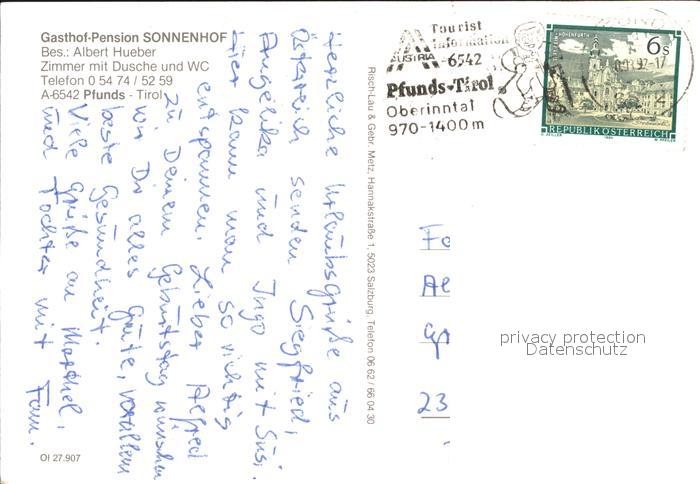 Gasthof-Pension SONNENHOF
Bes.: Albert Hueber
Zimmer mit Dusche und WC
Telefon 0 54 74 / 52 59
A-6542 Pfunds - Tirol
Herzliche Urlaubsgrüße aus
Österreich senden Siegfried,
Angelika und Ingo mit Susi.
Hier kann man so richtig
entspannen. Lieber Alfred
zu Deinem Geburtstag wünschen
wir Dir alles Gute, vorallem
beste Gesundheit.
Viele Grüße an
und Tochter mit Fam.
OI 27.907
Risch-Lau & Gebr. Metz, Hannakstraße 1, 5023 Salzburg, Telefon 06 62 / 66 04 30
Tourist
Information
AUSTRIA -6542
Pfunds-Tirol
Oberinntal
970-1400m
6 S
REPUBLIK ÖSTERREICH
Fa
Al
gr
23
privacy protection
Datenschutz